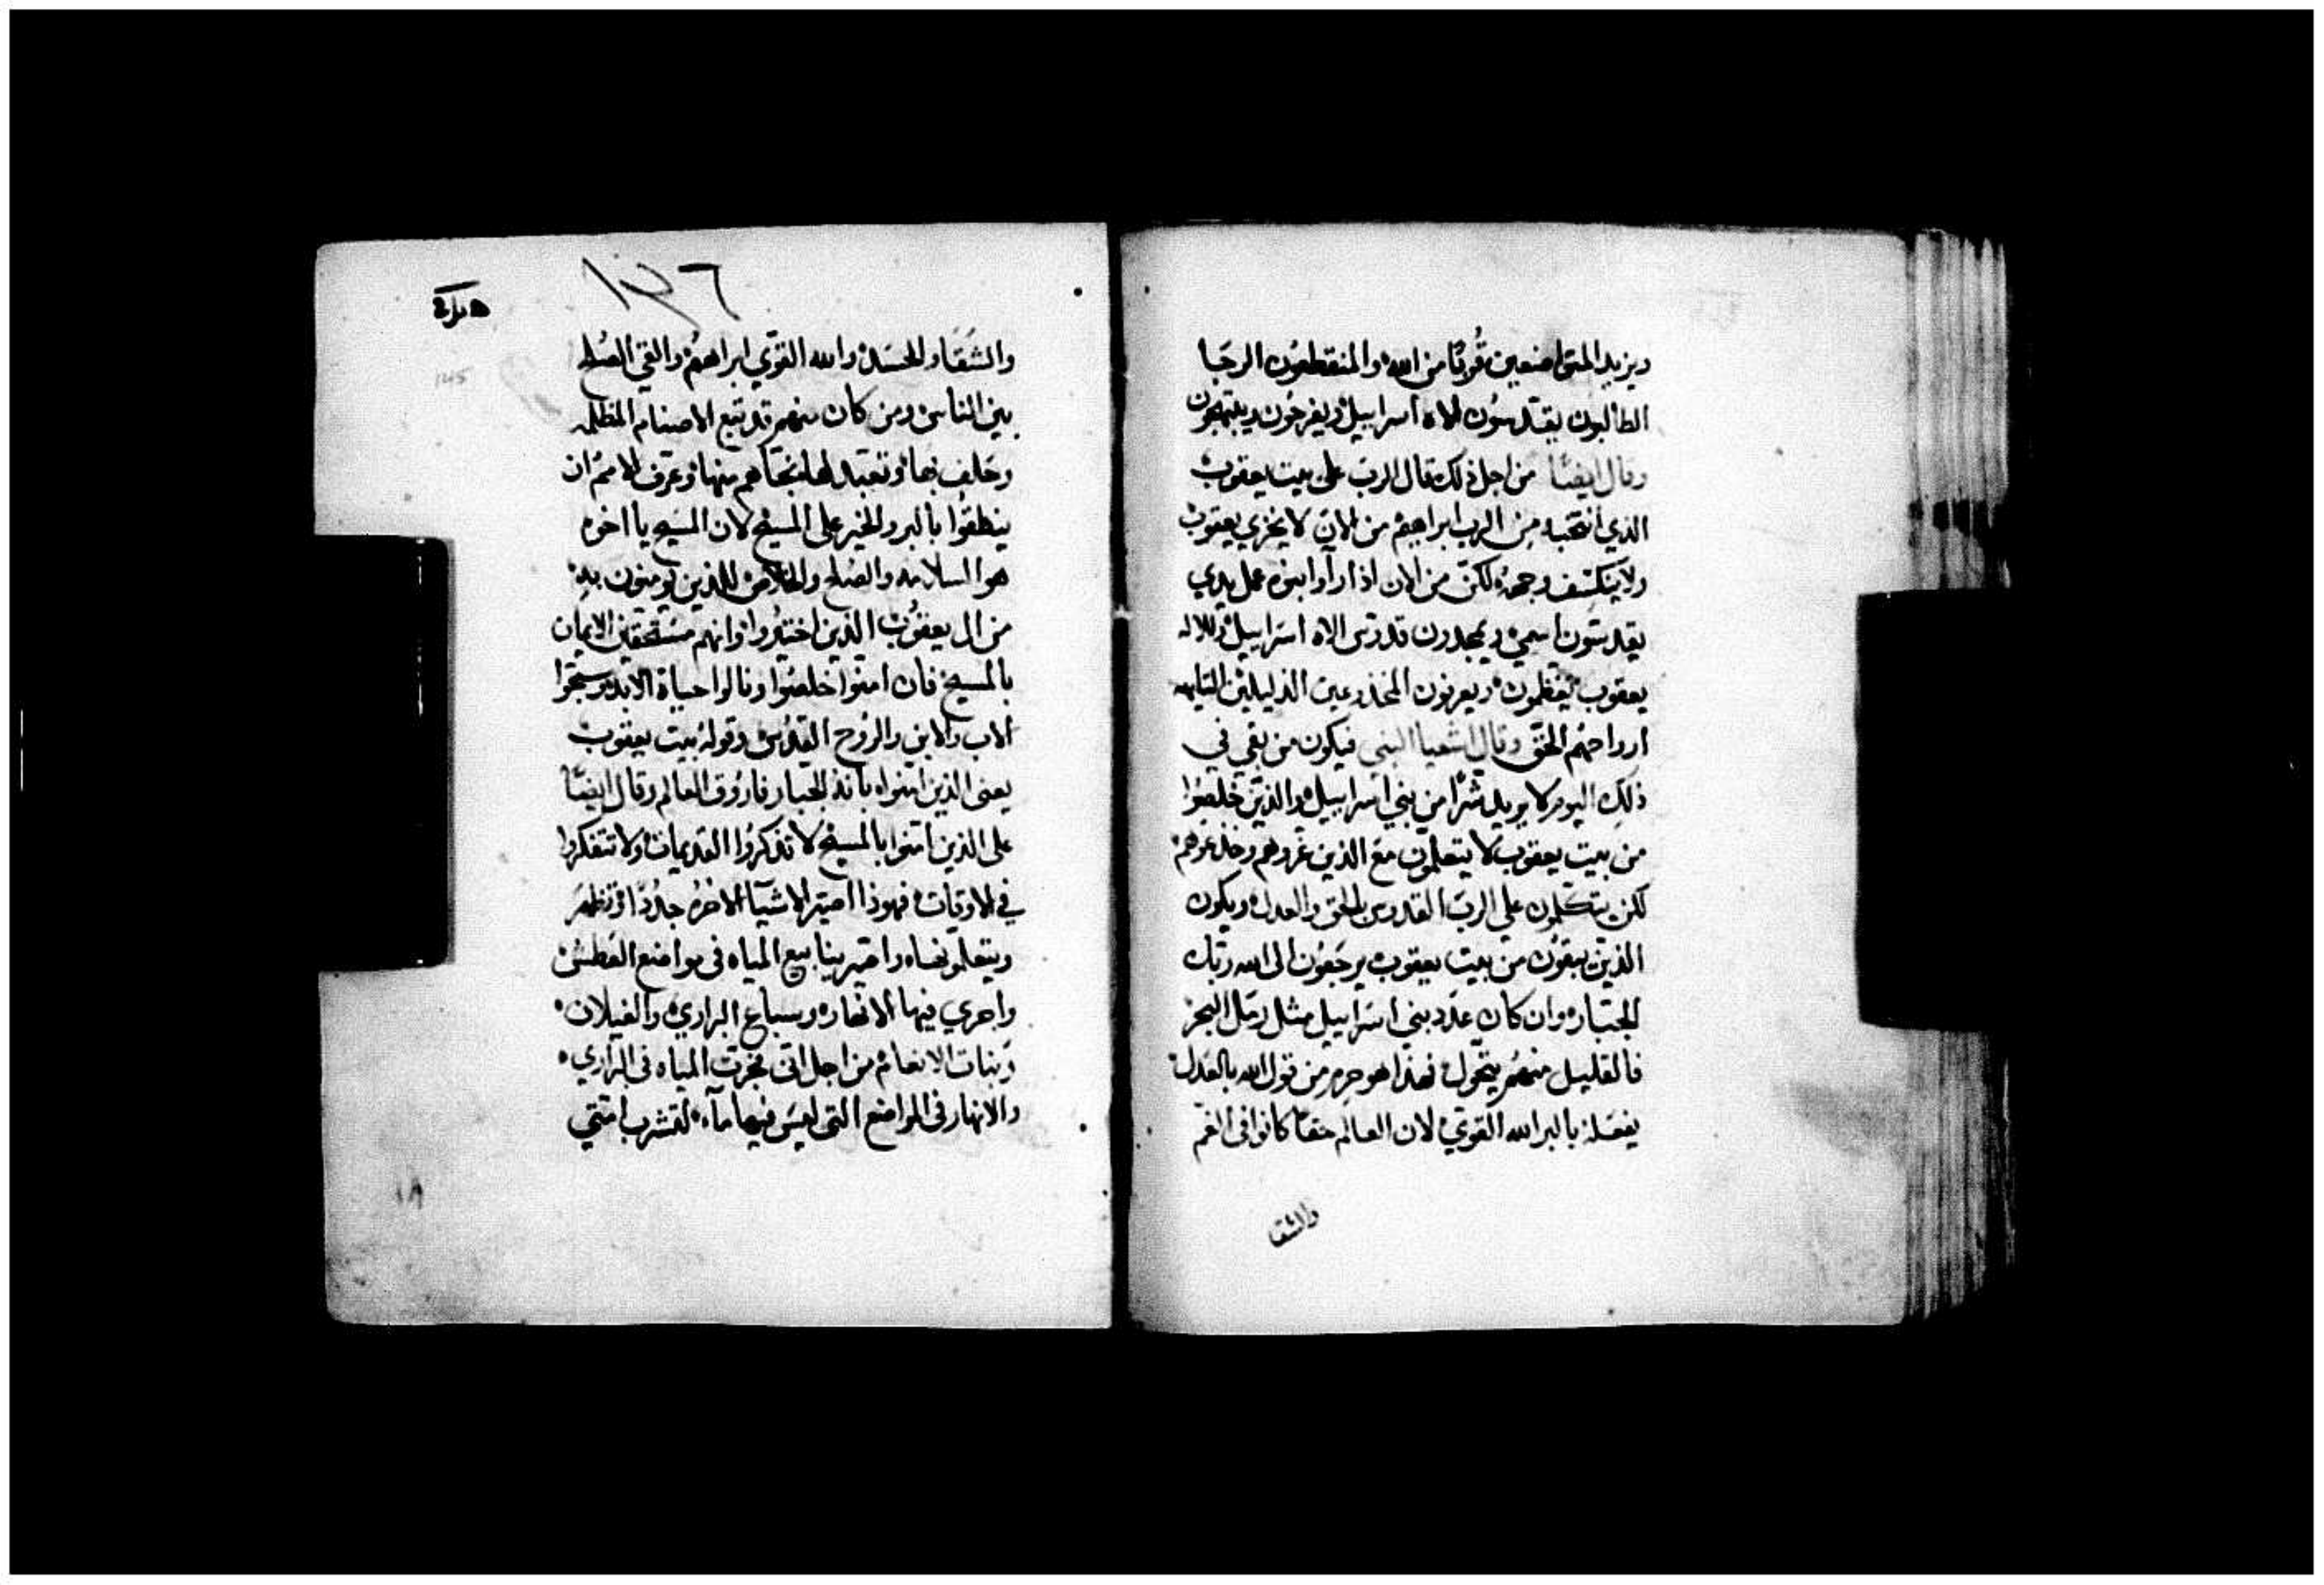 ويزيد المتواضعين قربًا من الله والمنقطعون الرجا
الطالبون يقدسون لاله اسراييل ويفرحون ويبتهجون
وقال ايضًا من اجل ذلك قال الرب على بيت يعقوب
الذي انتخبه من الرب ابراهيم من الان لا يخزي يعقوب
ولا ينكشف وجهه لكن من الان اذا راوا بنوه عمل يدي
يقدسون اسمي ويمجدون قدوس الاه اسراييل ولالاه
يعقوب يعظمون ويعرفون المخدوعين الذليلين التايهه
ارواحهم الحق وقال اشعيا النبي فيكون من بقي في
ذلك اليوم لا يريد شرًا من بني اسراييل والذين خلصوا
من بيت يعقوب لا يتكلمون مع الذين غروهم وخدعوهم
لكن يتكلمون على الرب القدوس بالحق والعدل ويكون
الذين يبقون من بيت يعقوب يرجعون الى الله ربك
الجبار وان كان عدد بني اسراييل مثل رمل البحر
فالقليل منهم يتحول فهذا هو جزم من قول الله بالعدل
يفعله بالبر الله القوي لان العالم حقًا كانوا في الغم
والشقا
١٢٦
والشقا والحسد والله القوي ابراهم والقي الصلح
بين الناس ومن كان منهم قد تبع الاصنام المظلمه
وحلف بها وتعبد لها نجاهم منها وعرف الامم ان
ينطقوا بالبر والخير على المسيح لان المسيح يا اخوه
هو السلامه والصلح والخلاص للذين يومنون به
من ال يعقوب الذين اختيروا وانهم مستحقين الايمان
بالمسيح فان امنوا خلصوا ونالوا حياة الابد وسبحوا
الاب والابن والروح القدس وقوله بيت يعقوب
يعنى الذين امنوا بانه الجبار فاروق العالم وقال ايضًا
على الذين امنوا بالمسيح لا تذكروا القديمات ولا تتفكروا
في الاوقات فهوذا اصير الاشيا الاخره جددًا وتظهر
ويتعلمونها واصير ينابيع المياه في مواضع العطش
واجري فيها الانهار وسباع البراري والغيلان
وبنات الانعام من اجل اني فجرت المياه في البراري
والانهار في المواضع التي ليس فيها ماء لتشرب امتي